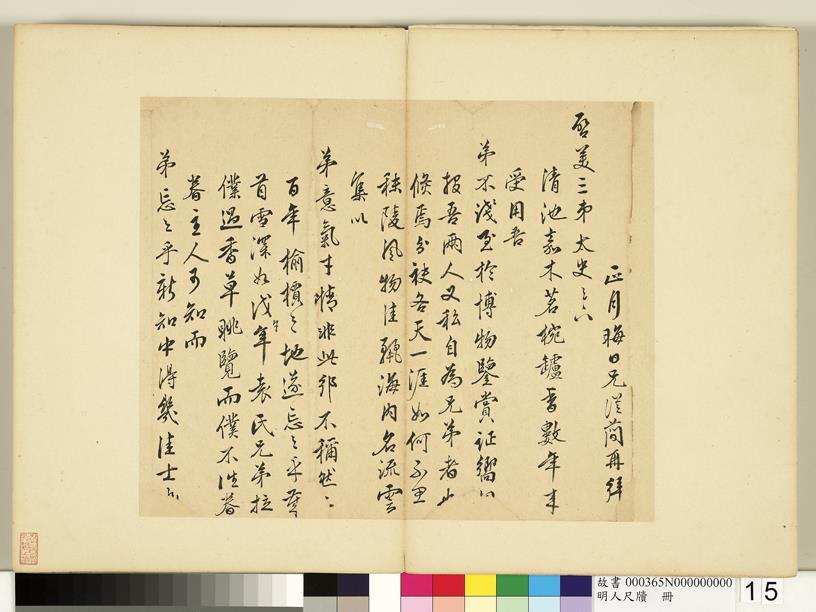 正月晦日兄從簡再拜
啓美三弟太史足下
清池嘉木茗椀罏香數年來
受用吾
弟不淺至於博物鑒賞証嚮以
報吾兩人又私自為兄弟者也
倏焉分袂各天一涯如何不思
秣陵風物佳麗海内名流雲
集以
弟意氣才情非此邦不稱然
百年榆檟之地遂忘之乎
首雪深如戊午年袁氏兄弟拉
僕過香草眺覽而僕不進眷
眷主人可知而
弟忘之乎新知中得幾佳士
故書 000365N000000000
明人尺牘 冊
15